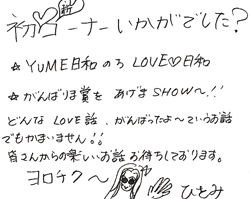 初♡新コーナーいかがでした？
☆YUME日和のろLOVE♡日和
☆がんばりま賞をあげまSHOW〜!!
どんなLOVE話、がんばったよ〜というお話
でもかまいません!!
皆さんからの楽しいお話お待ちしております。
ヨロチク〜
ひとみ